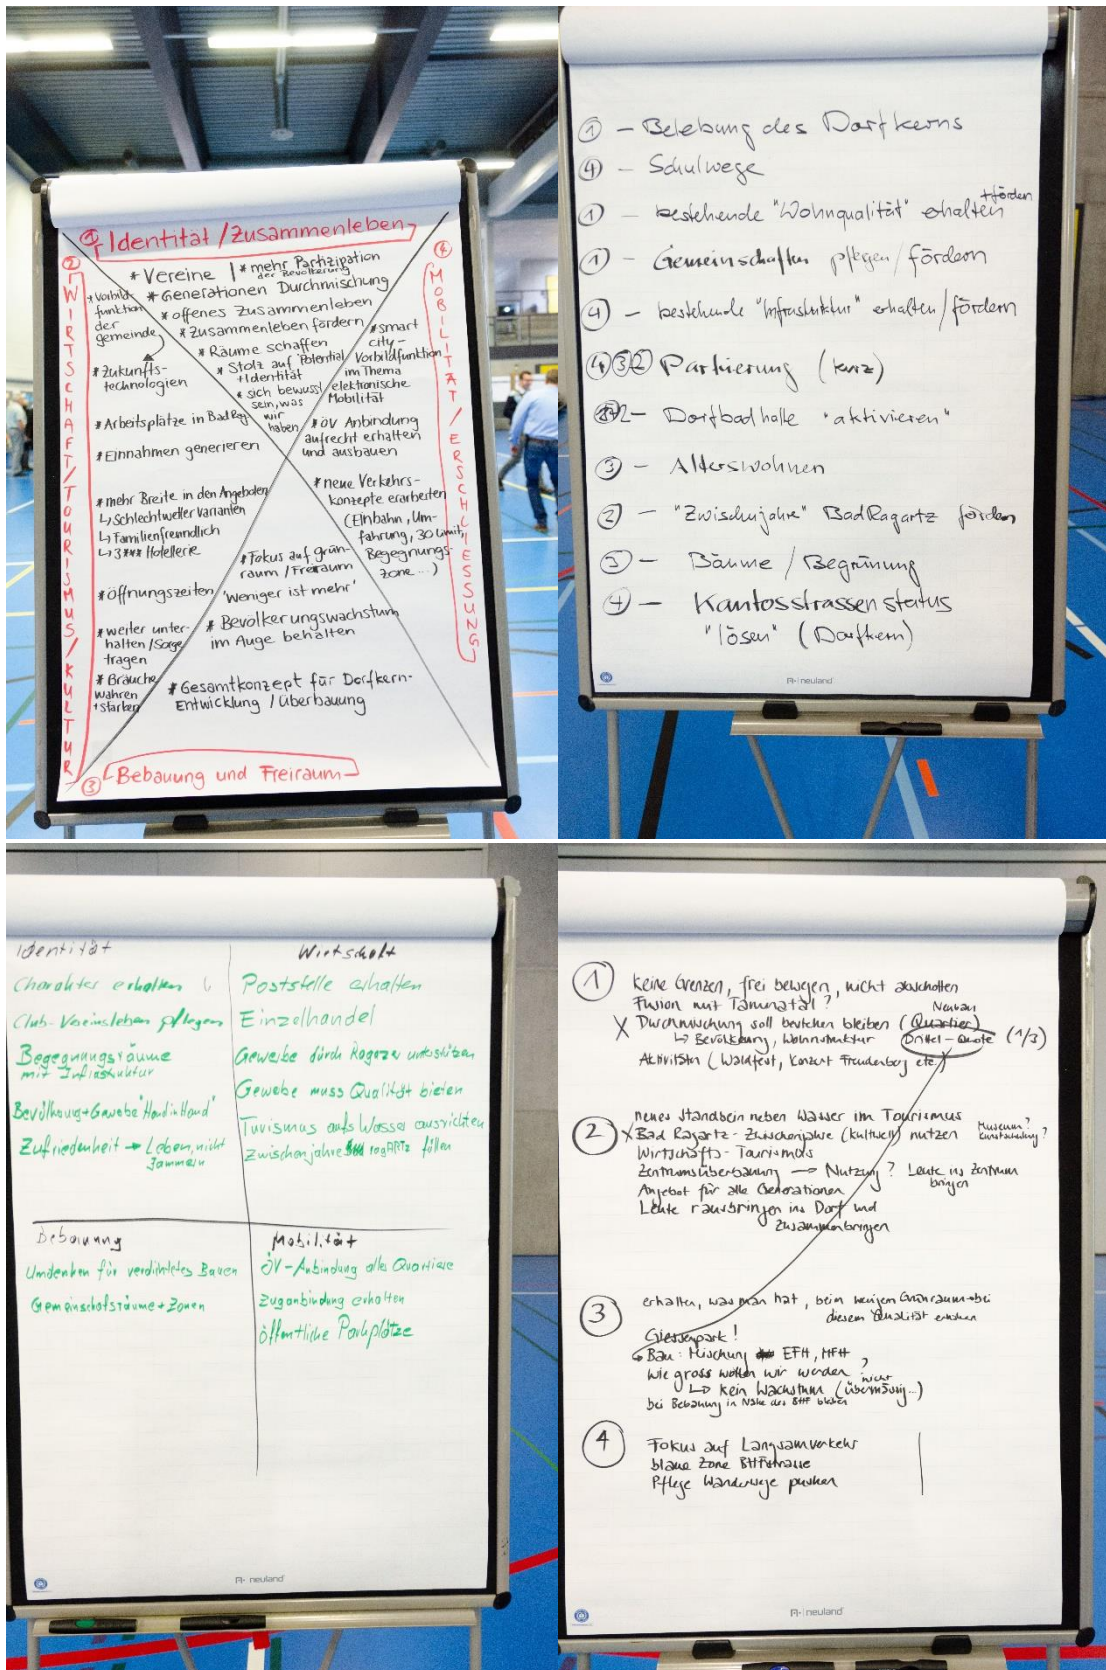 ① Identität / Zusammenleben
* Vereine
* mehr Partizipation
der Bevölkerung
* Generationen Durchmischung
* offenes Zusammenleben
* Zusammenleben fördern
* Räume schaffen
* Stolz auf Potential
+ Identität
* sich bewusst
sein, was
wir
haben
② WIRTSCHAFT/TOURISMUS/KULTUR
* Vorbild-
funktion
der
gemeinde
* Zukunfts-
technologien
* Arbeitsplätze in Bad Rag.
* Einnahmen generieren
* mehr Breite in den Angeboten
↳ Schlechtwetter varianten
↳ Familienfreundlich
↳ 3*** Hotellerie
* öffnungszeiten
* weiter unter-
halten / Sorge
tragen
* Bräuche
wahren
+ stärken
④ MOBILITÄT / ERSCHLIESSUNG
* smart
city -
Vorbildfunktion
im Thema
elektronische
Mobilität
* öv Anbindung
aufrecht erhalten
und ausbauen
* neue Verkehrs-
konzepte erarbeiten
(Einbahn, Um-
fahrung, 30 Limit,
Begegnungs-
zone ...)
* Fokus auf grün-
raum / Freiraum
'Weniger ist mehr'
* Bevölkerungswachstum
im Auge behalten
* Gesamtkonzept für Dorfkern-
Entwicklung / Überbauung
③ Bebauung und Freiraum
① - Belebung des Dorfkerns
④ - Schulwege
① - bestehende "Wohnqualität" erhalten + fördern
① - Gemeinschaften pflegen / fördern
④ - bestehende "Infrastruktur" erhalten / fördern
④③② Parkierung (kurz)
2 - Dorfbadhalle "aktivieren"
③ - Alterswohnen
② - "Zwischenjahre" BadRagartz fördern
③ - Bäume / Begrünung
④ - Kantosstrassenstatus
"lösen" (Dorfkern)
neuland
Identität
Charakter erhalten
Club-Vereinsleben pflegen
Begegnungsräume
mit Infrastruktur
Bevölkerung + Gewebe "Hand in Hand"
Zufriedenheit → Leben, nicht
Jammern
Wirtschaft
Poststelle erhalten
Einzelhandel
Gewerbe durch Ragazer unterstützen
Gewebe muss Qualität bieten
Turismus aufs Wasser ausrichten
Zwischenjahre ragARTz füllen
Bebauung
Umdenken für verdichtetes Bauen
Gemeinschafsräume + Zonen
Mobilität
ÖV-Anbindung alles Quartiere
Zuganbindung erhalten
öffentliche Parkplätze
neuland
① keine Grenzen, frei bewegen, nicht abschotten
Fusion mit Taminatal?
Neubau
X Durchmischung soll bestehen bleiben (Quartier)
↳ Bevölkerung, Wohnstruktur Drittel-Quote (1/3)
Aktivitäten (Waldfest, Konzert Freudenberg etc.)
② neues Standbein neben Wasser im Tourismus
X Bad Ragartz - Zwischenjahre (kulturell) nutzen Museum?
Wirtschafts-Tourismus
Zentrumsüberbauung → Nutzung? Leute ins Zentrum
bringen
Angebot für alle Generationen
Leute rausbringen ins Dorf und
zusammenbringen
③ erhalten, was man hat, beim wenigen Grünraum
diesem Qualität erhöhen
Giessenpark!
Bau: Mischung EFH, MFH
Wie gross wollen wir werden?
↳ kein Wachstum (nicht übermässig...)
bei Bebauung in Nähe des BHF bleiben
④ Fokus auf Langsamverkehr
blaue Zone BHFstrasse
Pflege Wanderwege pushen
neuland